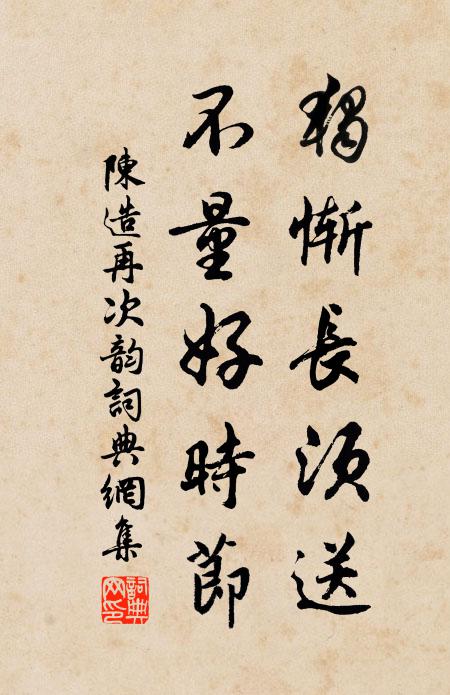 獨慚長須送
不量好時節
陳造再次韵詞典網集
詞典